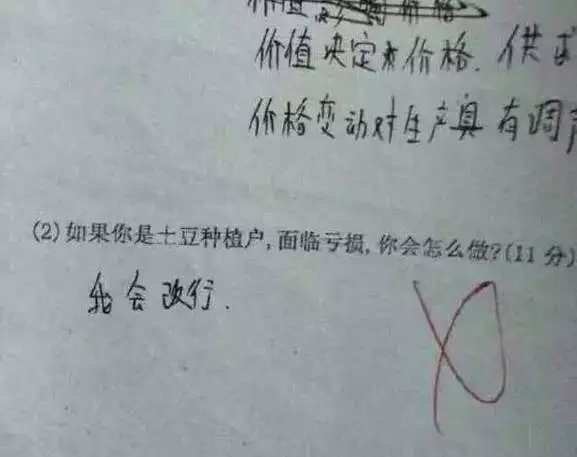 价值决定价格
价值决定价格.供求
价格变动对生产具有调节
(2)如果你是土豆种植户,面临亏损,你会怎么做?(11分)
我会改行.